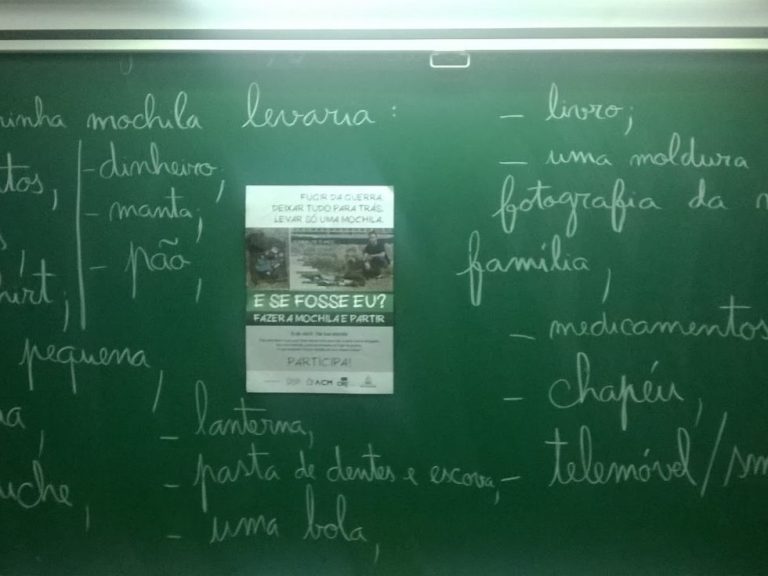 inha mochila levaria :
tos,
hirt;
pequena,
a,
uche,
- dinheiro;
- manta;
- pão,
- lanterna,
- pasta de dentes e escova,
- uma bola,
FUGIR DA GUERRA.
DEIXAR TUDO PARA TRÁS.
LEVAR SÓ UMA MOCHILA.
E SE FOSSE EU?
FAZER A MOCHILA E PARTIR
PARTICIPA!
ACM
- livro;
- uma moldura
fotografia da
família,
- medicamentos
- chapéu,
- telemóvel/sm